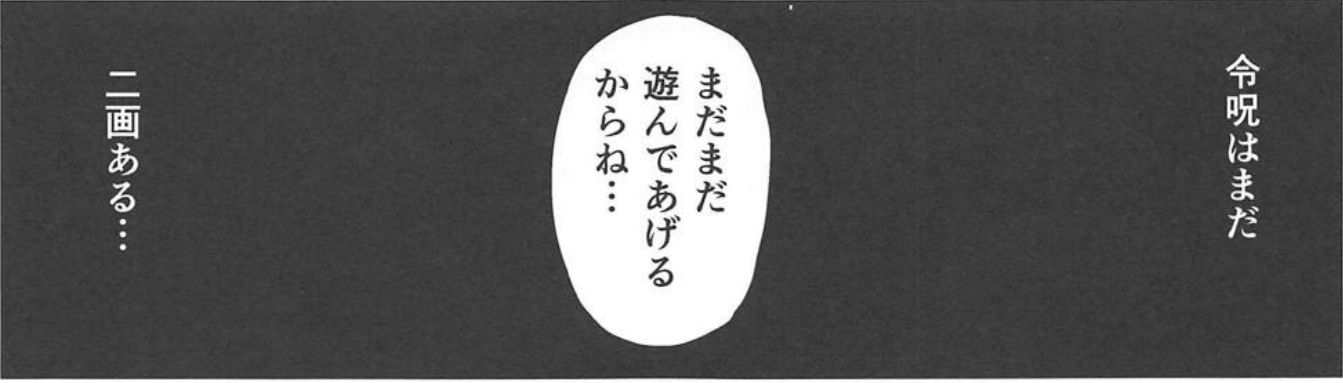 令呪はまだ
まだまだ
遊んであげる
からね…
二画ある…